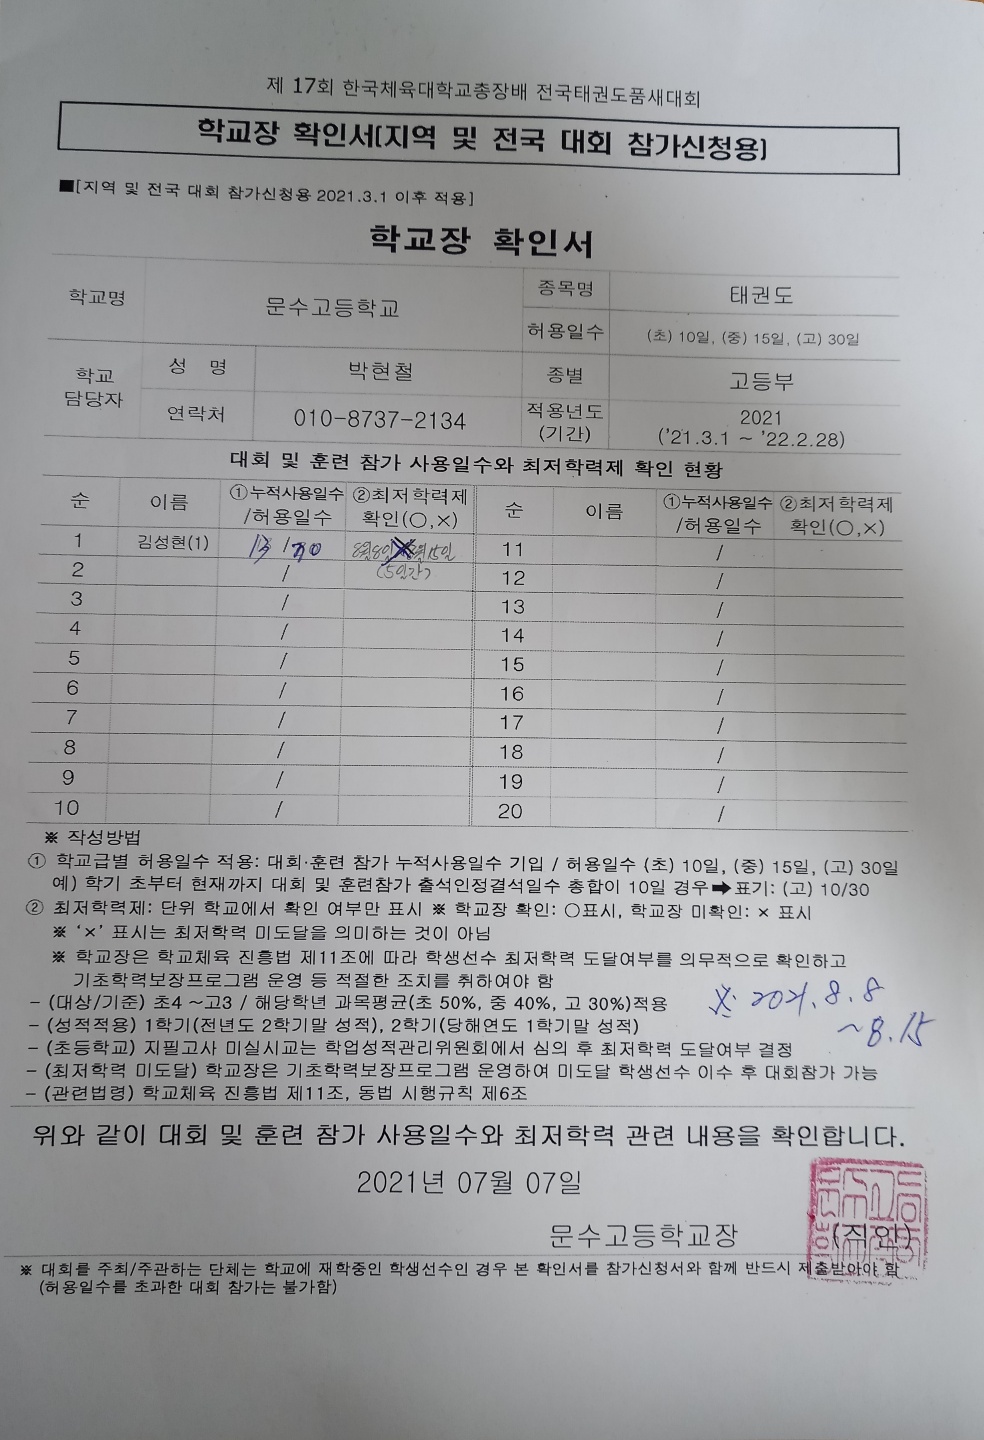 제 17회 한국체육대학교총장배 전국태권도품새대회
학교장 확인서[지역 및 전국 대회 참가신청용]
■[지역 및 전국 대회 참가신청용 2021.3.1 이후 적용]
학교장 확인서
학교명 문수고등학교 종목명 태권도
허용일수 (초) 10일, (중) 15일, (고) 30일
학교 담당자 성 명 박현철 종별 고등부
연락처 010-8737-2134 적용년도 (기간) 2021 ('21.3.1 ~ '22.2.28)
대회 및 훈련 참가 사용일수와 최저학력제 확인 현황
순 이름 ①누적사용일수 /허용일수 ②최저학력제 확인(○,×) 순 이름 ①누적사용일수 /허용일수 ②최저학력제 확인(○,×)
1 김성현(1) 13 / 30 8월8일 8월15일 11 /
2 / (5일간) 12 /
3 / 13 /
4 / 14 /
5 / 15 /
6 / 16 /
7 / 17 /
8 / 18 /
9 / 19 /
10 / 20 /
※ 작성방법
① 학교급별 허용일수 적용: 대회·훈련 참가 누적사용일수 기입 / 허용일수 (초) 10일, (중) 15일, (고) 30일
예) 학기 초부터 현재까지 대회 및 훈련참가 출석인정결석일수 총합이 10일 경우➡표기: (고) 10/30
② 최저학력제: 단위 학교에서 확인 여부만 표시 ※ 학교장 확인: ○표시, 학교장 미확인: × 표시
※ '×' 표시는 최저학력 미도달을 의미하는 것이 아님
※ 학교장은 학교체육 진흥법 제11조에 따라 학생선수 최저학력 도달여부를 의무적으로 확인하고
기초학력보장프로그램 운영 등 적절한 조치를 취하여야 함
- (대상/기준) 초4 ~고3 / 해당학년 과목평균(초 50%, 중 40%, 고 30%)적용
※ 2021.8.8
~8.15
- (성적적용) 1학기(전년도 2학기말 성적), 2학기(당해연도 1학기말 성적)
- (초등학교) 지필고사 미실시교는 학업성적관리위원회에서 심의 후 최저학력 도달여부 결정
- (최저학력 미도달) 학교장은 기초학력보장프로그램 운영하여 미도달 학생선수 이수 후 대회참가 가능
- (관련법령) 학교체육 진흥법 제11조, 동법 시행규칙 제6조
위와 같이 대회 및 훈련 참가 사용일수와 최저학력 관련 내용을 확인합니다.
2021년 07월 07일
문수고등학교장 (직인)
※ 대회를 주최/주관하는 단체는 학교에 재학중인 학생선수인 경우 본 확인서를 참가신청서와 함께 반드시 제출받아야 함
(허용일수를 초과한 대회 참가는 불가함)